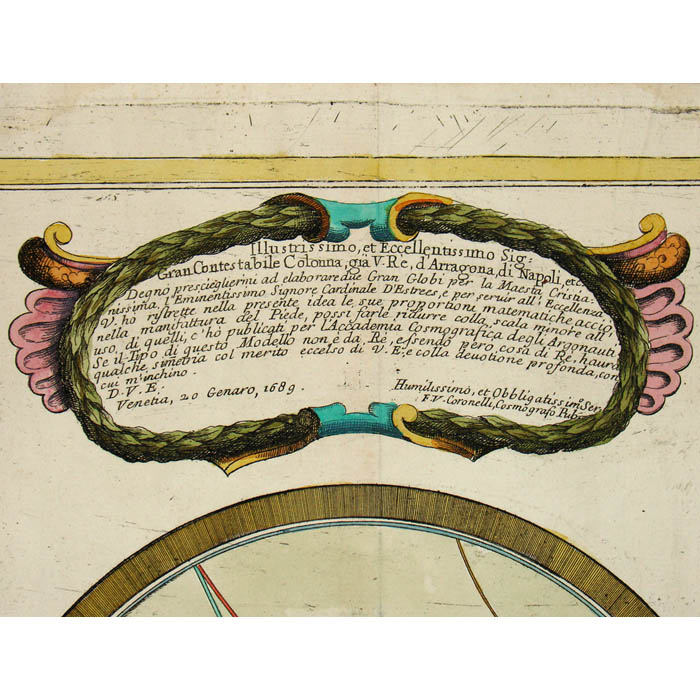 Illustrissimo, et Eccellentissimo Sig:
Gran Contestabile Colonna, già V. Re, d'Arragona, di Napoli, etc
Degnò presciegliermi ad elaborare due Gran Globi per la Maestà Cristia-
nissima, l'Eminentissimo Signore Cardinale D'Estrees, e per seruir all'Eccellenza
V. hò ristrette nella presente idea le sue proporzioni matematiche, acciò
nella manifattura del Piede, possi farle ridurre colla scala minore all'
uso, di quelli, c'hò publicati per l'Accademia Cosmografica degli Argonauti
Se il Tipo di questo Modello non è da Rè, essendo però, cosa di Rè, haurà
qualche simetria col merito eccelso di V. E, e colla deuotione profonda, con
cui m'inchino.
D. V. E.
Venetia, 20 Genaro, 1689.
Humilissimo, et Obbligatissimo Ser.
F. V. Coronelli, Cosmografo Pub.